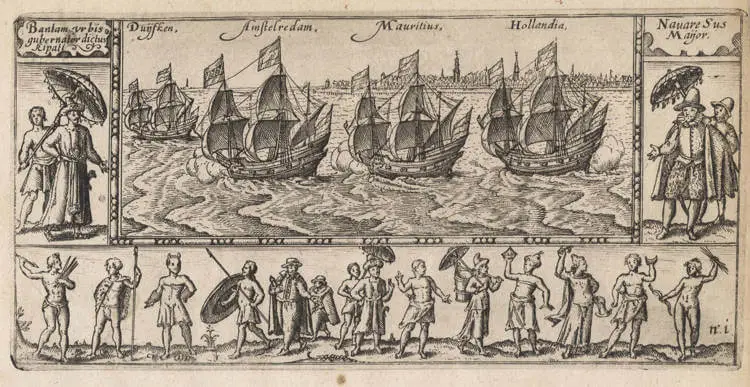 Bantam urbis
gubernator dictus
Kipati
Duijfken,
Amstelredam,
Mauritius,
Hollandia,
Navare Sus
Maijor.
nº. i